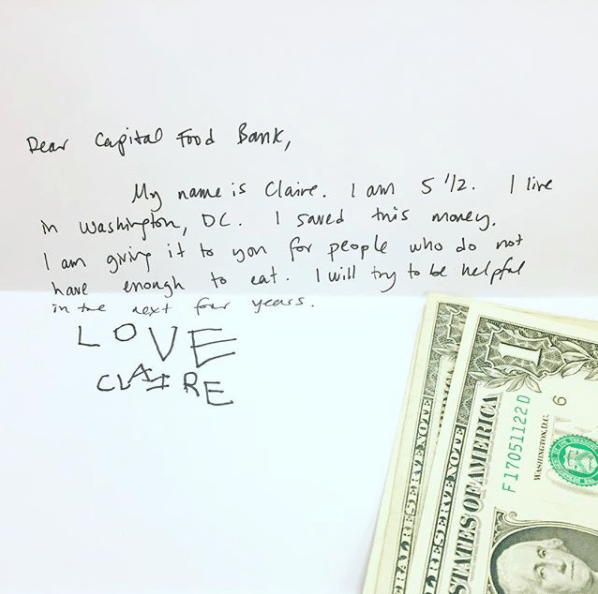 Dear Capital Food Bank,
My name is Claire. I am 5 1/2. I live
in Washington, DC. I saved this money.
I am giving it to you for people who do not
have enough to eat. I will try to be helpful
in the next few years.
LOVE
CLAIRE
RAL RESERVE NOTE
L RESERVE NOTE
STATES OF AMERICA
1
F17051122D
WASHINGTON, D.C.
6